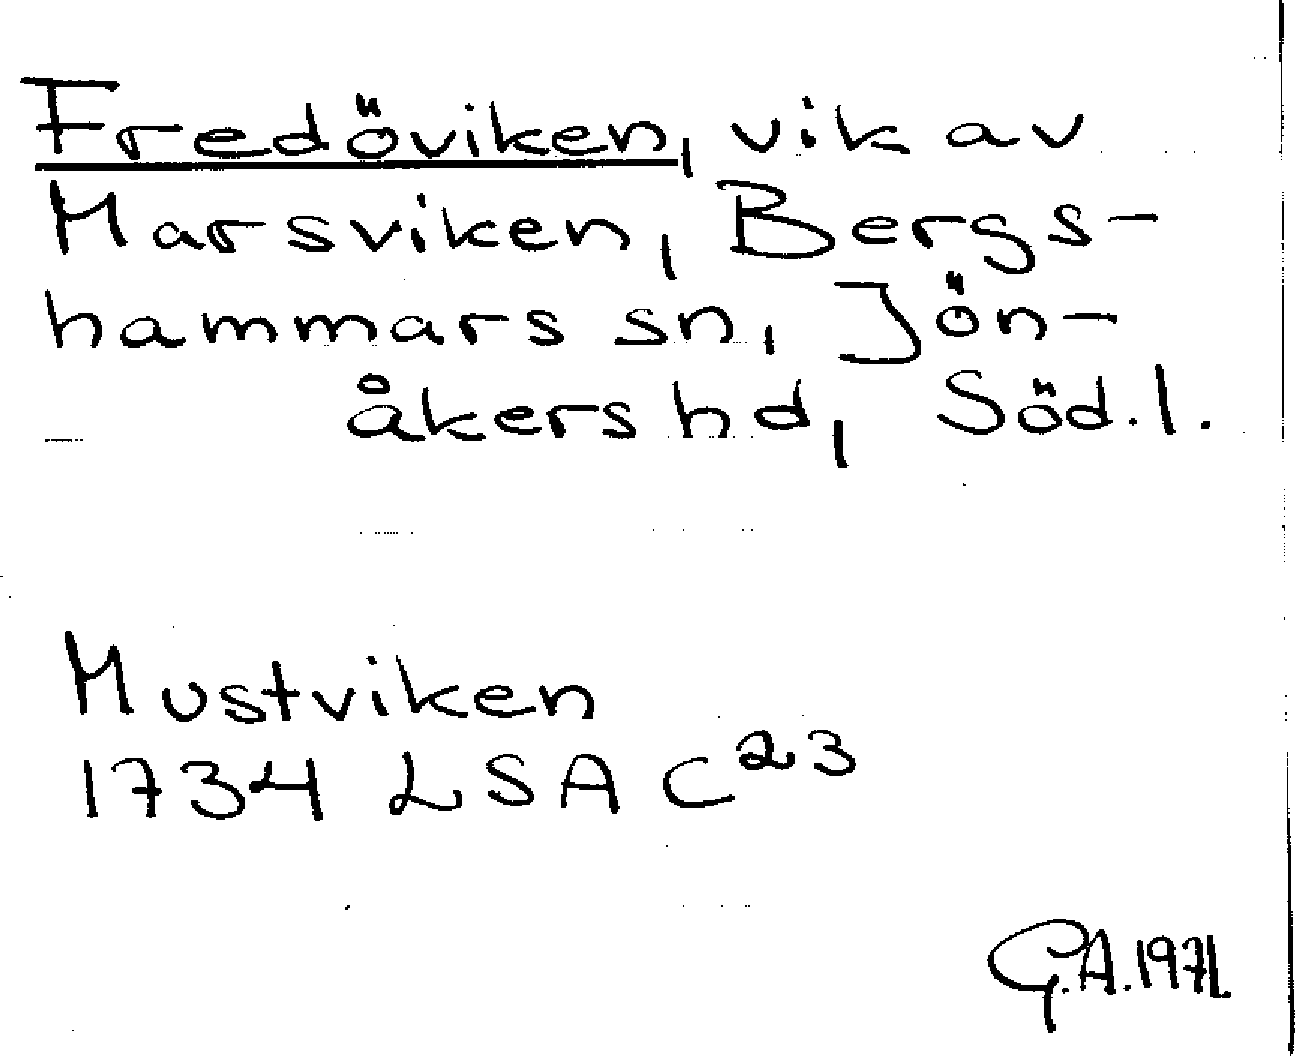 Fredöviken, vik av
Marsviken, Bergs-
hammars sn, Jön-
åkers hd, Söd.l.
Mustviken
1734 LSA C23
G.A.1971.